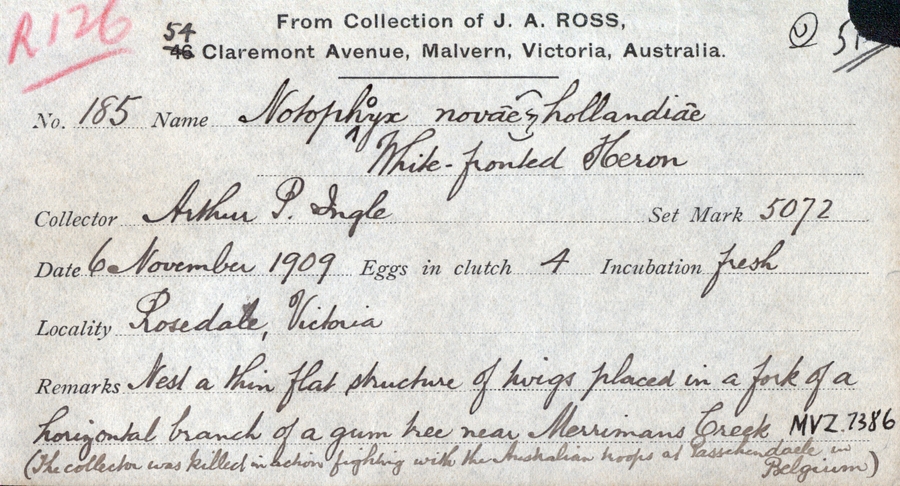 R126
From Collection of J. A. ROSS,
54
46 Claremont Avenue, Malvern, Victoria, Australia.
No. 185 Name Notophyx novae hollandiae
White-fronted Heron
Collector Arthur P. Ingle Set Mark 5072
Date 6 November 1909 Eggs in clutch 4 Incubation fresh
Locality Rosedale, Victoria
Remarks Nest a thin flat structure of twigs placed in a fork of a
horizontal branch of a gum tree near Merrimans Creek MVZ 7386
(The collector was killed in action fighting with the Australian troops at Passchendaele in
Belgium)